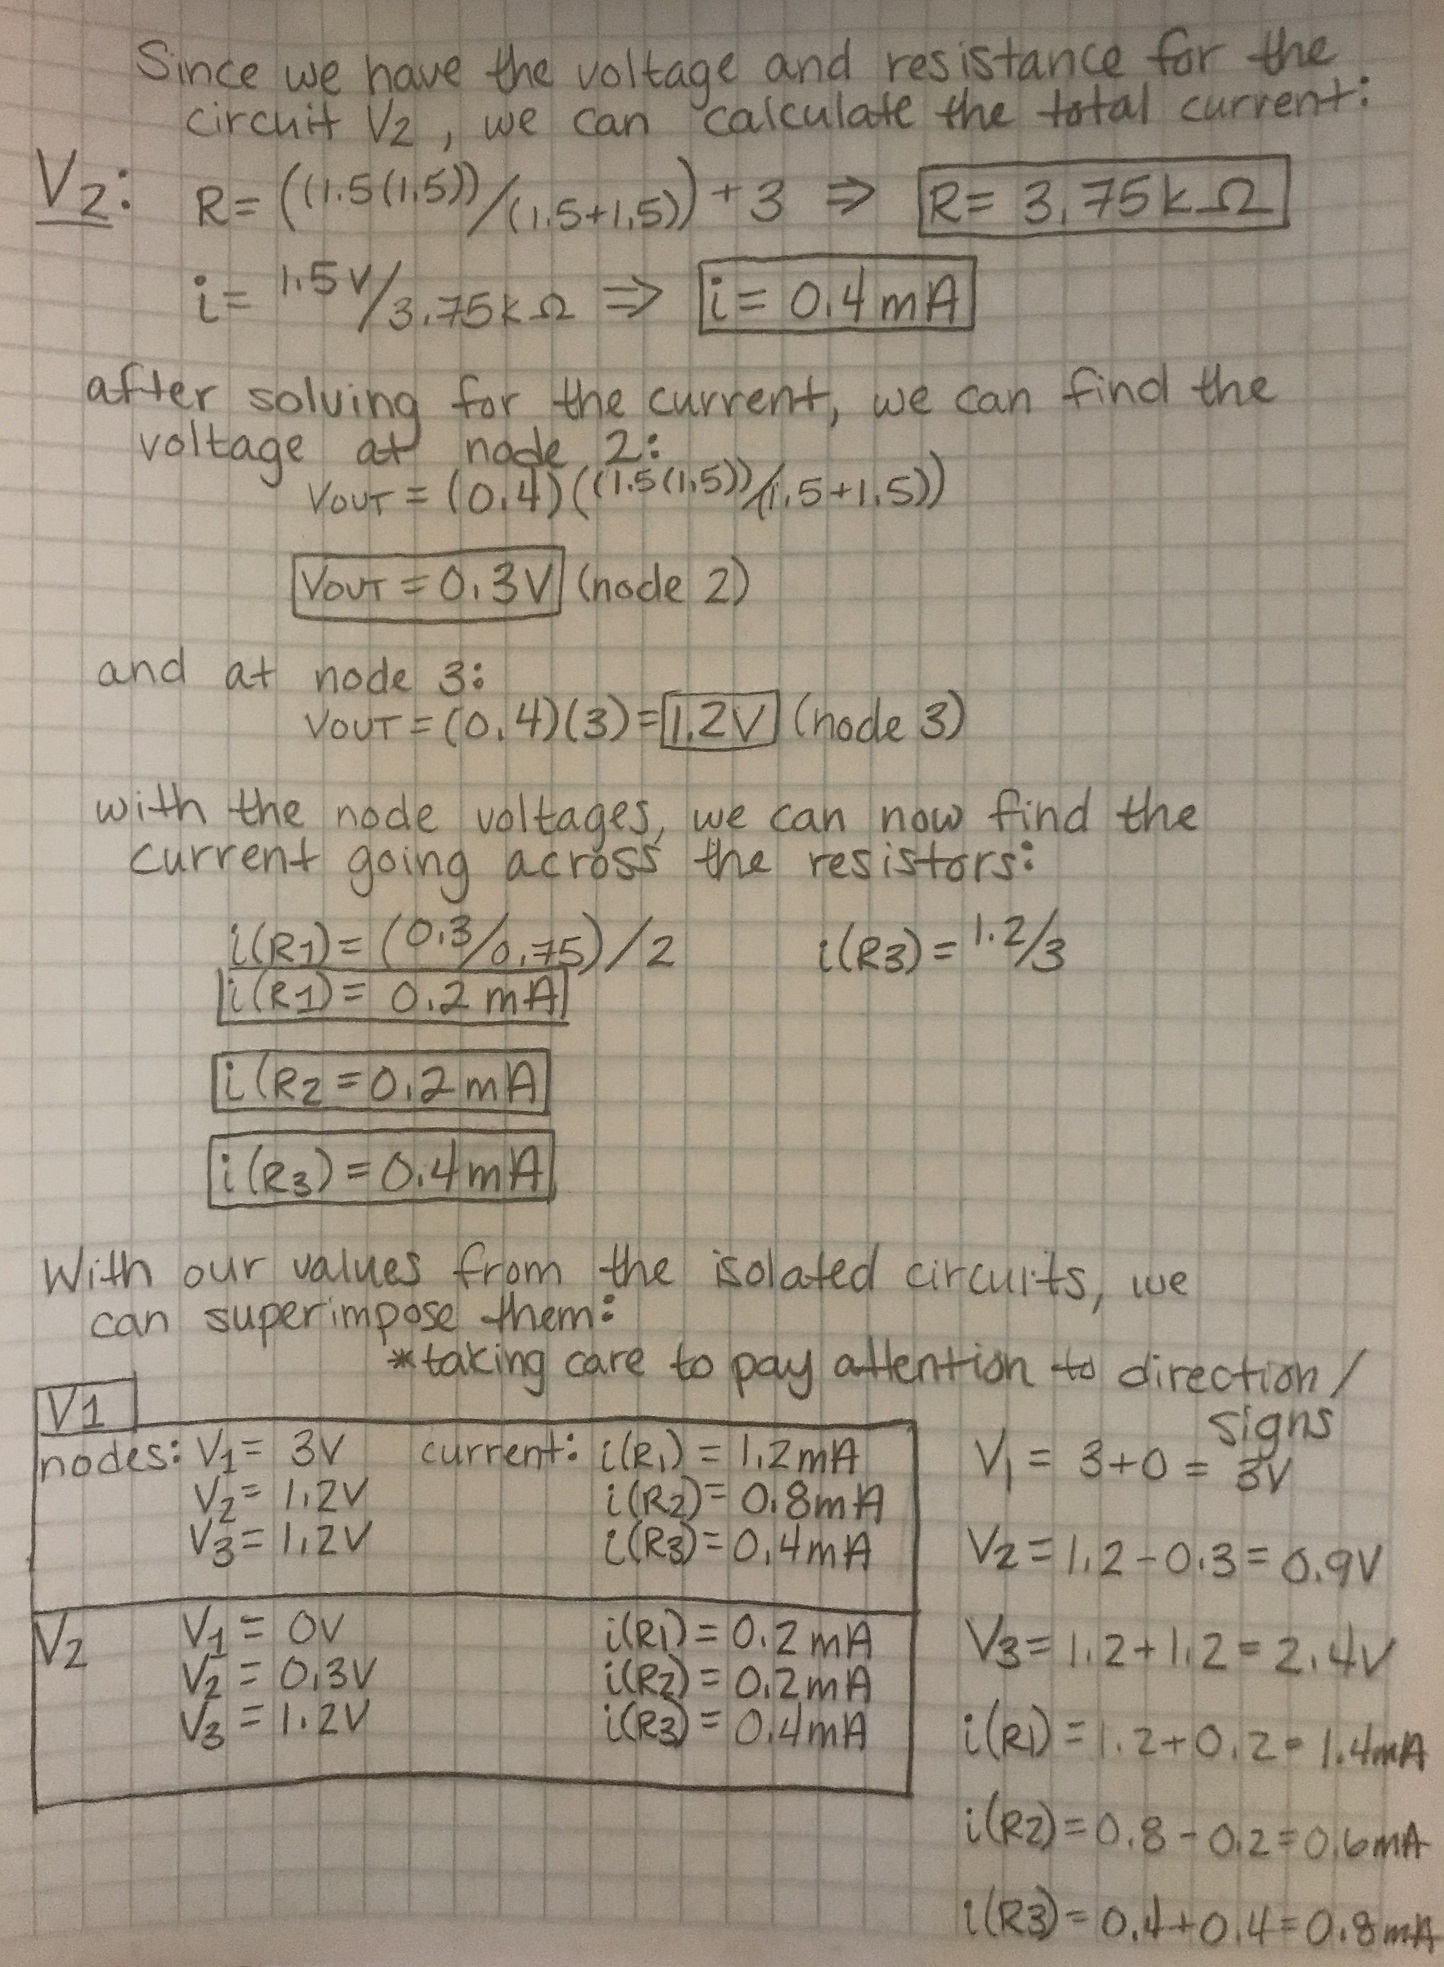 Since we have the voltage and resistance for the
circuit V2, we can calculate the total current:
V2: R= ((1.5(1.5))/(1.5+1.5)) + 3 ⇒ R= 3.75kΩ
i= 1.5V/3.75kΩ ⇒ i= 0.4mA
after solving for the current, we can find the
voltage at node 2:
VOUT = (0.4)((1.5(1.5))/(1.5+1.5))
VOUT = 0.3V (node 2)
and at node 3:
VOUT = (0.4)(3) = 1.2V (node 3)
with the node voltages, we can now find the
current going across the resistors:
i(R1) = (0.3/0.75)/2 i(R3) = 1.2/3
i(R1) = 0.2 mA
i(R2 = 0.2mA
i(R3) = 0.4mA
With our values from the isolated circuits, we
can superimpose them:
*taking care to pay attention to direction/
signs
V1
nodes: V1 = 3V current: i(R1) = 1.2mA
V2 = 1.2V i(R2) = 0.8mA
V3 = 1.2V i(R3) = 0.4mA
V2 V1 = 0V i(R1) = 0.2mA
V2 = 0.3V i(R2) = 0.2mA
V3 = 1.2V i(R3) = 0.4mA
V1 = 3+0 = 3V
V2 = 1.2-0.3 = 0.9V
V3 = 1.2+1.2 = 2.4V
i(R1) = 1.2+0.2 = 1.4mA
i(R2) = 0.8-0.2 = 0.6mA
i(R3) = 0.4+0.4 = 0.8mA